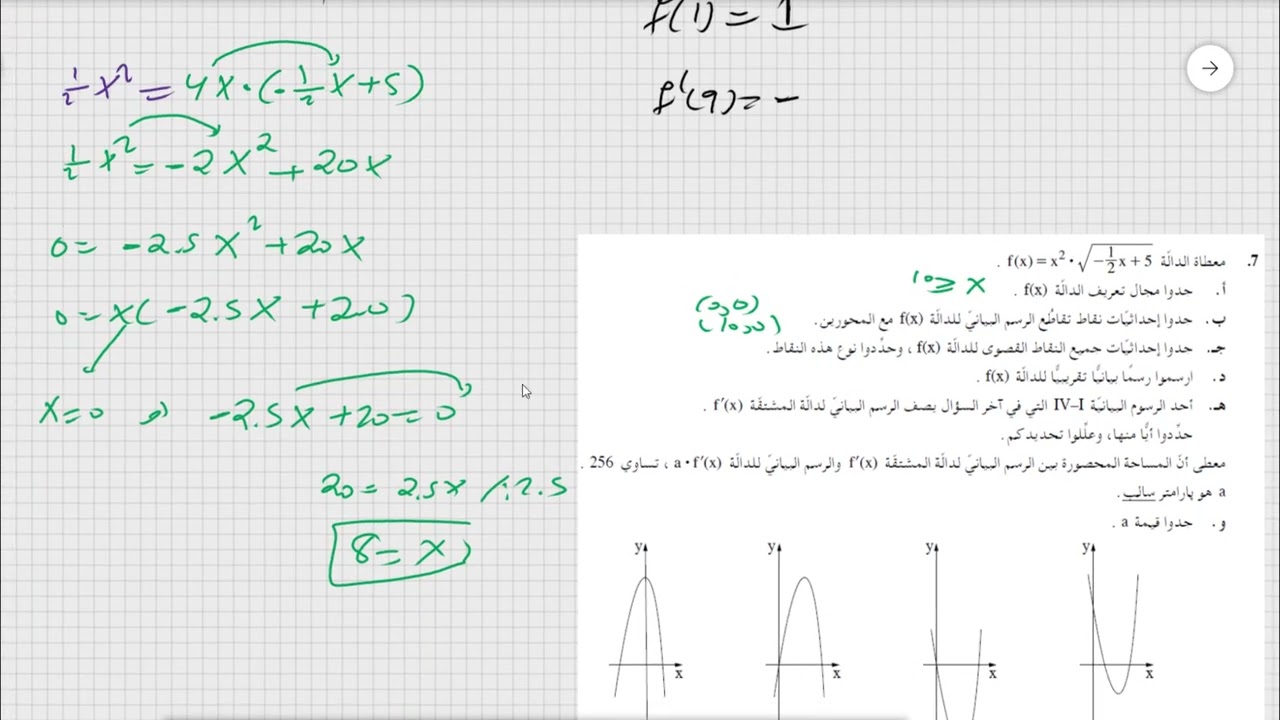 f(1) = 1
f'(9) = -
½x² = 4x·(-½x+5)
½x² = -2x² + 20x
0 = -2.5x² + 20x
0 = x(-2.5x + 20)
x=0 او -2.5x + 20 = 0
20 = 2.5x /:2.5
8 = x
7. معطاة الدالّة f(x) = x² · √(-½x + 5) .
أ. حدوا مجال تعريف الدالّة f(x) .
10 ≥ x
ب. حدوا إحداثيّات نقاط تقاطُع الرسم البيانيّ للدالّة f(x) مع المحورين.
(0,0)
(10,0)
جـ. حدوا إحداثيّات جميع النقاط القصوى للدالّة f(x) ، وحدِّدوا نوع هذه النقاط.
د. ارسموا رسمًا بيانيًّا تقريبيًّا للدالّة f(x) .
هـ. أحد الرسوم البيانيّة I–IV التي في آخر السؤال يصف الرسم البيانيّ لدالّة المشتقّة f'(x) .
حدّدوا أيًّا منها، وعلِّلوا تحديدكم.
معطى أنّ المساحة المحصورة بين الرسم البيانيّ لدالّة المشتقّة f'(x) والرسم البيانيّ للدالّة a · f'(x) ، تساوي 256 .
a هو پارامتر سالب .
و. حدوا قيمة a .
y y y y
x x x x